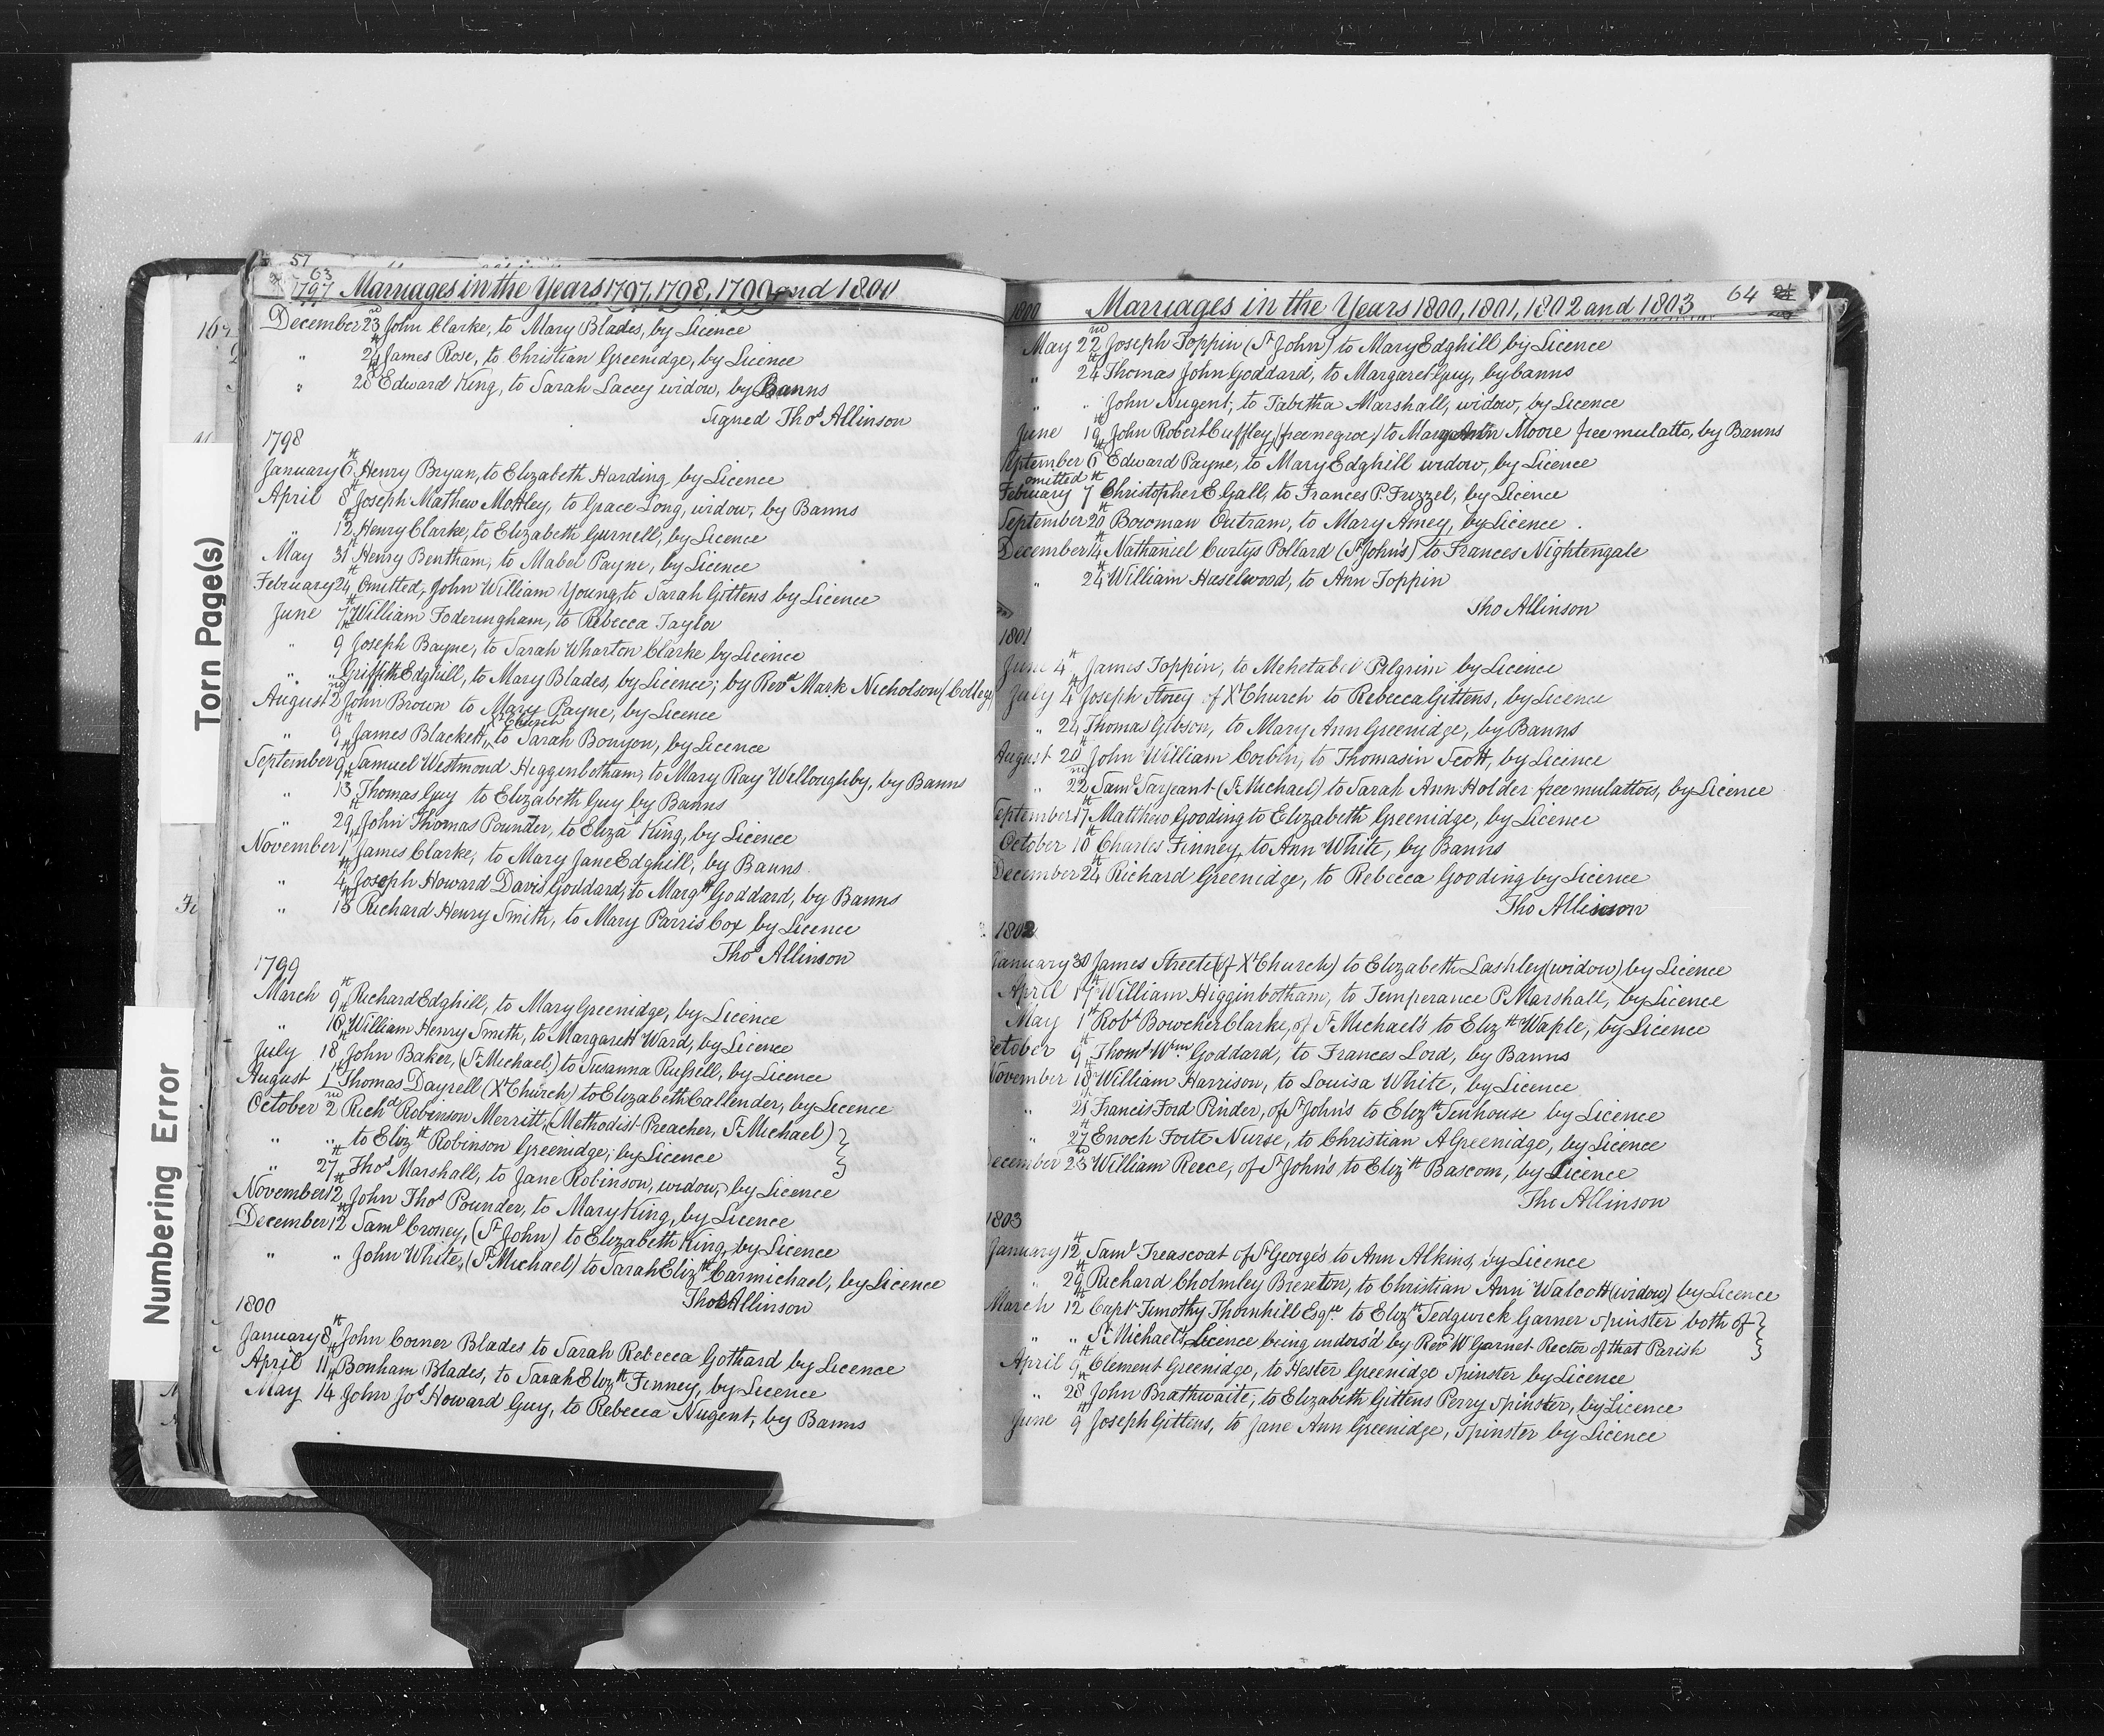 Torn Page(s)
Numbering Error
57
63
1797 Marriages in the Years 1797, 1798, 1799 and 1800
December 23rd John Clarke, to Mary Blades, by Licence
" 24th James Rose, to Christian Greenidge, by Licence
" 28th Edward King, to Sarah Lacey widow, by Banns
Signed Thos Allinson
1798
January 6th Henry Bryan, to Elizabeth Harding, by Licence
April 8th Joseph Mathew Mottley, to Grace Long, widow, by Banns
" 12th Henry Clarke, to Elizabeth Gurnell, by Licence
May 31st Henry Bentham, to Mabel Payne, by Licence
February 24th Omitted, John William Young, to Sarah Gittens by Licence
June 7th William Foderingham, to Rebecca Taylor
" 9th Joseph Bayne, to Sarah Wharton Clarke by Licence
" " Griffith Edghill, to Mary Blades, by Licence; by Revd Mark Nicholson (College)
August 2nd John Brown to Mary Payne, by Licence
" 9th James Blackett, Xt Church to Sarah Bonyon, by Licence
September 9th Samuel Westmond Higginbotham, to Mary Ray Willoughby, by Banns
" 13th Thomas Guy to Elizabeth Guy by Banns
" 29th John Thomas Pounder, to Eliza King, by Licence
November 1st James Clarke, to Mary Jane Edghill, by Banns
" 4th Joseph Howard Davis Goddard, to Margtt Goddard, by Banns
" 18th Richard Henry Smith, to Mary Parris Cox by Licence
Thos Allinson
1799
March 9th Richard Edghill, to Mary Greenidge, by Licence
" 16th William Henry Smith, to Margarett Ward, by Licence
July 18th John Baker, (St Michael) to Susanna Russell, by Licence
August 1st Thomas Dayrell (Xt Church) to Elizabeth Callender, by Licence
October 2nd Richd Robinson Merritt, (Methodist Preacher, St Michael)
" " to Elizth Robinson Greenidge, by Licence
" 27th Thos Marshall, to Jane Robinson, widow, by Licence
November 12th John Thos Pounder, to Mary King, by Licence
December 12th Saml Croney, (St John) to Elizabeth King, by Licence
" " John White, (St Michael) to Sarah Elizth Carmichael, by Licence
Thos Allinson
1800
January 8th John Corner Blades to Sarah Rebecca Gothard by Licence
April 11th Bonham Blades, to Sarah Elizth Finney, by Licence
May 14th John Jos Howard Guy, to Rebecca Nugent, by Banns
1800 Marriages in the Years 1800, 1801, 1802 and 1803 64
May 22nd Joseph Toppin (St John) to Mary Edghill by Licence
" 24th Thomas John Goddard, to Margaret Guy, by banns
" " John Nugent, to Tabitha Marshall, widow, by Licence
June 19th John Robert Cuffley, (free negroe,) to Mary Ann Moore free mulatto, by Banns
September 6th Edward Payne, to Mary Edghill widow, by Licence
omitted
February 7th Christopher E Gall, to Frances P. Frizzel, by Licence
September 20th Bowman Outram, to Mary Amey, by Licence.
December 14th Nathaniel Curtys Pollard (St John's) to Frances Nightengale
" 24th William Haselwood, to Ann Toppin
Tho Allinson
1801
June 4th James Toppin, to Mehetabel Pilgrim by Licence
July 4th Joseph Storey of Xt Church to Rebecca Gittens, by Licence
" 24th Thomas Gibson, to Mary Ann Greenidge, by Banns
August 20th John William Corbin, to Thomasin Scott, by Licence
" 22nd Saml Sarjeant (St Michael) to Sarah Ann Holder free mulattos, by Licence
September 17th Matthew Gooding to Elizabeth Greenidge, by Licence
October 10th Charles Finney, to Ann White, by Banns
December 24th Richard Greenidge, to Rebecca Gooding by Licence
Tho Allinson
1802
January 30 James Streete (of Xt Church) to Elizabeth Lashley (widow) by Licence
April 17th William Higginbotham, to Temperance P. Marshall, by Licence
May 1st Robt Bowcher Clarke, of St Michael's to Elizth Waple, by Licence
October 9th Thoms Wm Goddard, to Frances Lord, by Banns
November 18th William Harrison, to Louisa White, by Licence
" 21st Francis Ford Pinder, of St John's to Elizth Senhouse by Licence
" 27th Enoch Forte Nurse, to Christian A Greenidge, by Licence
December 23rd William Reece, of St John's to Elizth Bascom, by Licence
Tho Allinson
1803
January 12th Saml Treascoat of St George's to Ann Alkins, by Licence
" 29th Richard Cholmley Brereton, to Christian Ann Walcott (widow) by Licence
March 12th Captn Timothy Thornhill Esqre to Elizth Sedgwick Garner Spinster both of
" " St Michael's, Licence being indors'd by Revd W Garnet Rector of that Parish
April 9th Clement Greenidge, to Hester Greenidge Spinster by Licence
" 28th John Brathwaite, to Elizabeth Gittens Perry Spinster, by Licence
June 9th Joseph Gittens, to Jane Ann Greenidge, Spinster by Licence